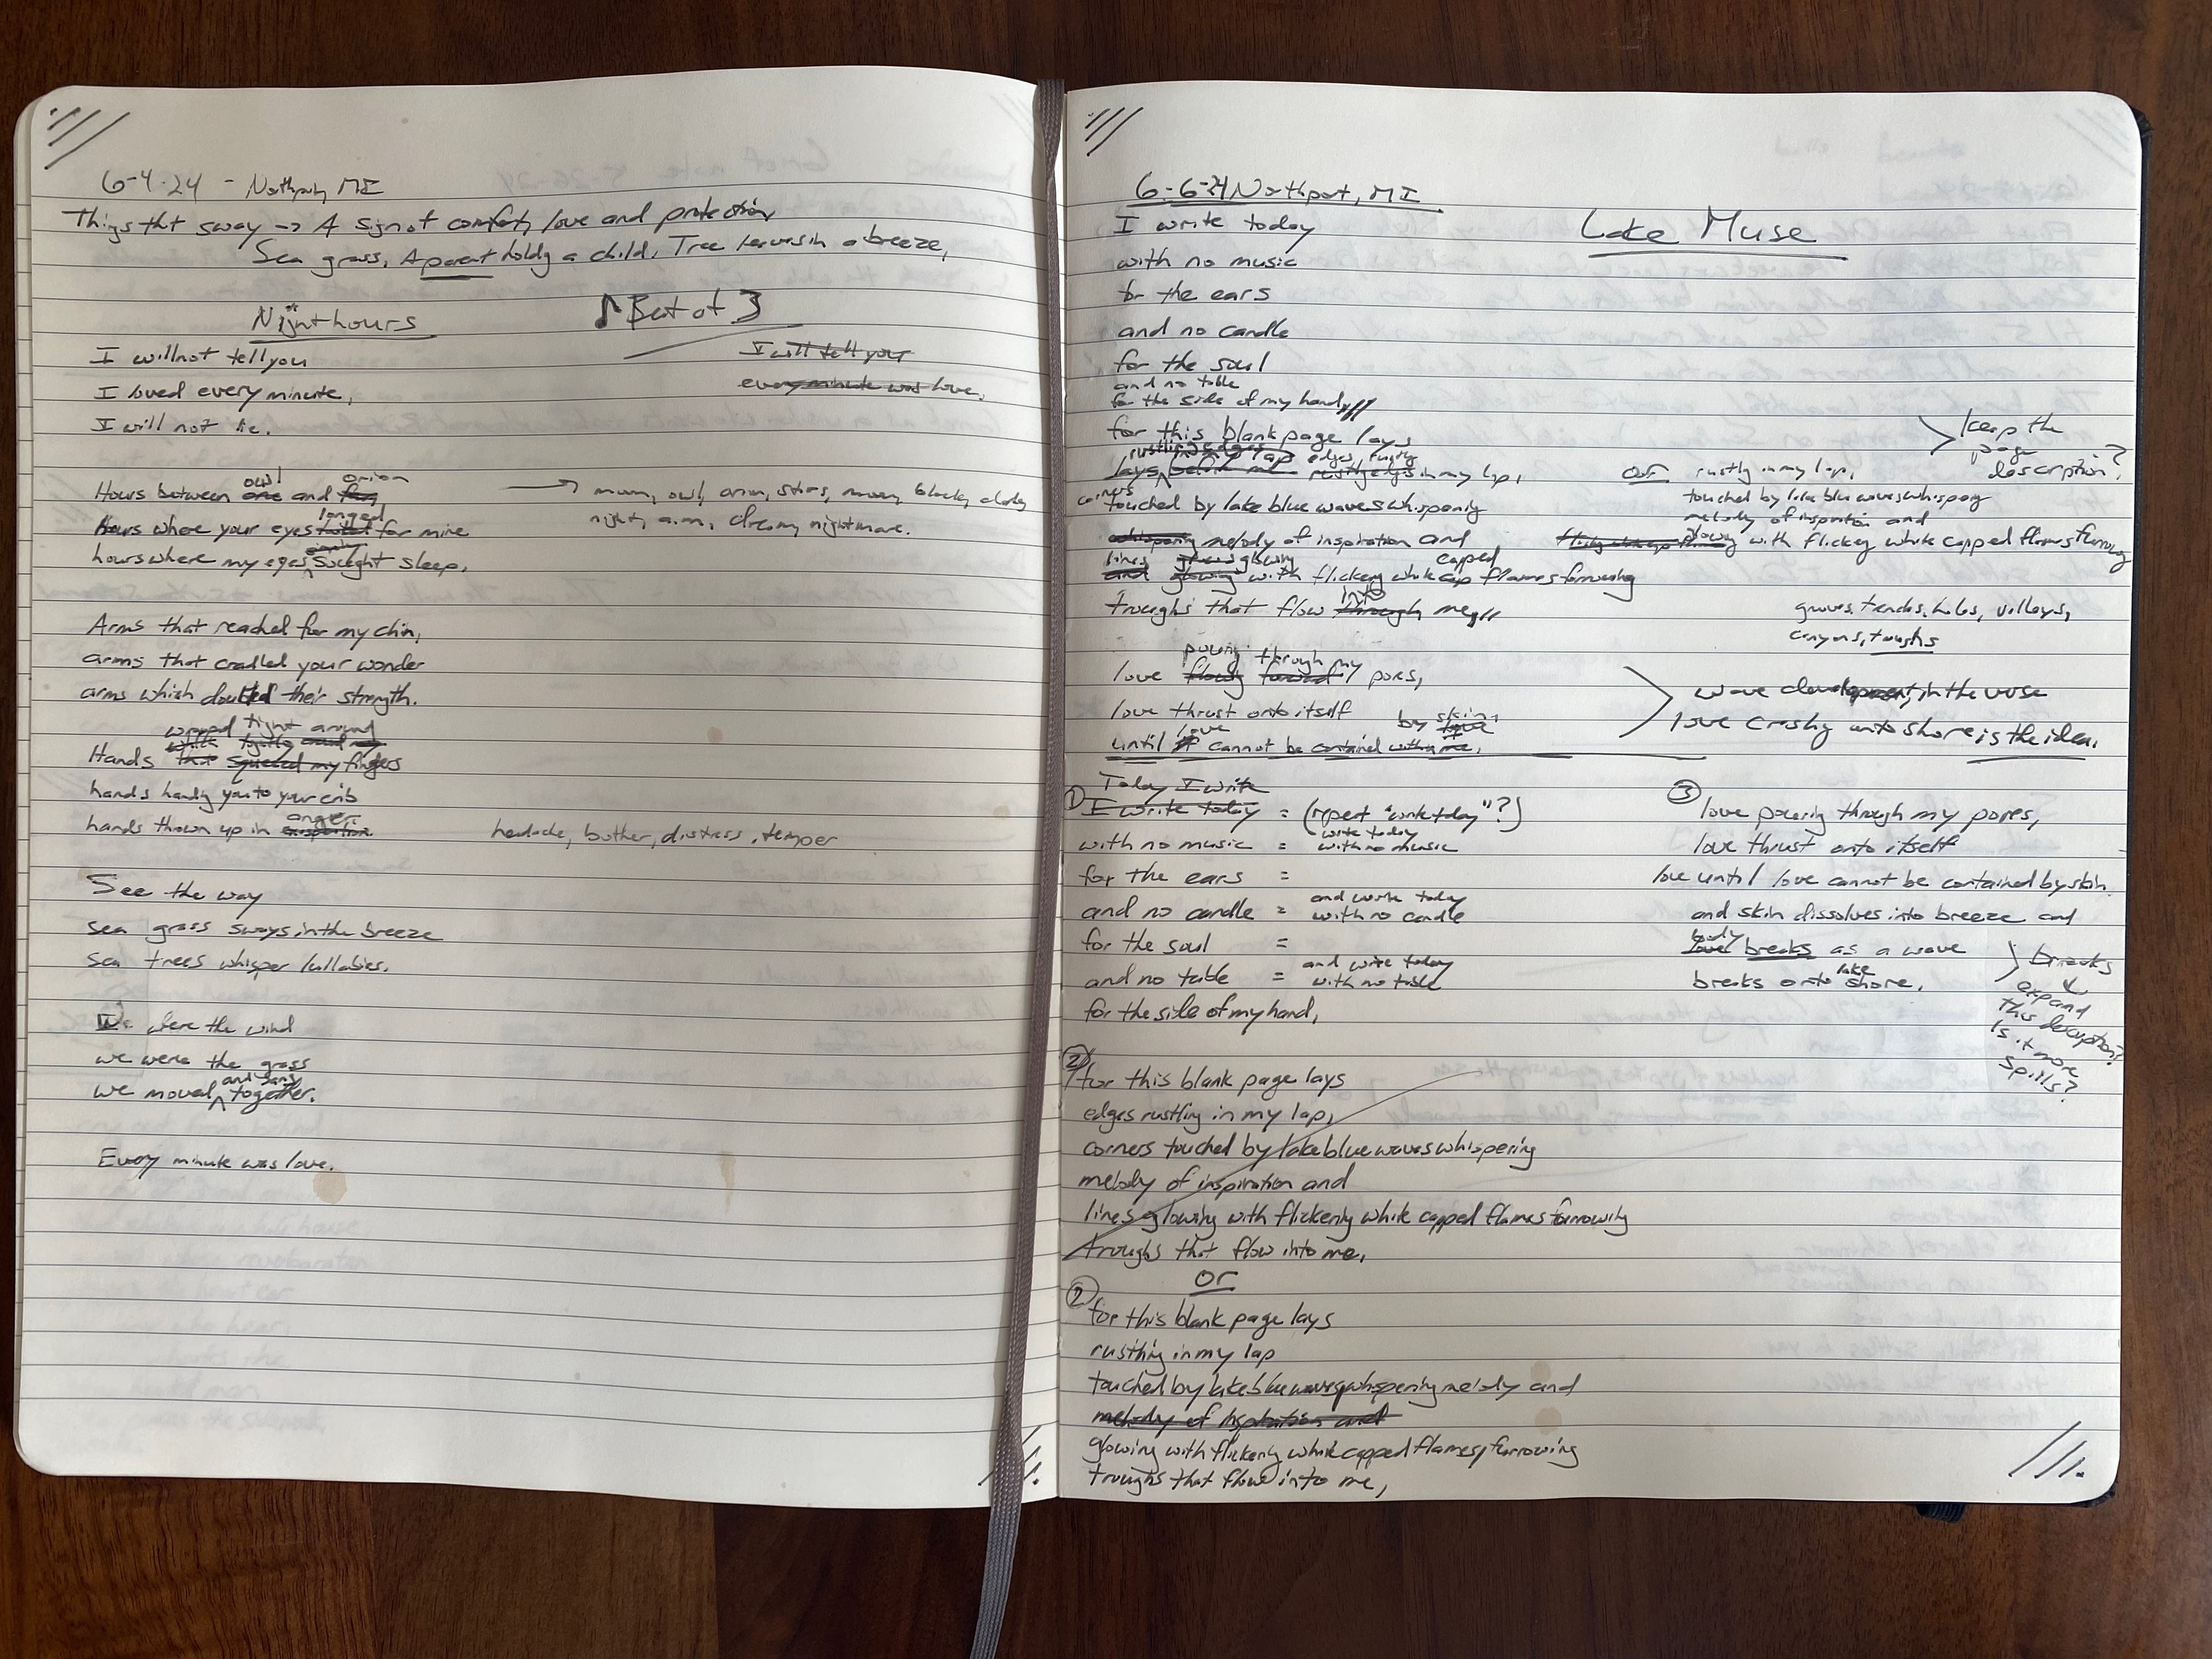 6-4-24 - Northport, MI
Things that sway -> A sign of comfort, love and protection
Sea grass, A parent holdg a child, Tree leaves in a breeze,
Nighthours
♪ Beat of 3
I will not tell you
I loved every minute,
I will not lie.
I will tell you
every minute was love.
owl orion
Hours between one and four
longed
Hours where your eyes for mine
hours where my eyes sought sleep.
moon, owl, orion, stars, moon, black, clocks,
night, a.m., dream, nightmare.
Arms that reached for my chin,
arms that cradled your wonder
arms which doubted their strength.
wrapped tight around
Hands that squeezed my fingers
hands handg you to your crib
anger.
hands thrown up in exasperation
headache, bother, distress, temper
See the way
sea grass sways in the breeze
sea trees whisper lullabies.
We were the wind
we were the grass
and sang
we moved ^ together.
Every minute was love.
6-6-24 Northport, MI
Lake Muse
I write today
with no music
for the ears
and no candle
for the soul
and no table
for the side of my hand,//
for this blank page lays
rustling edges
lays before me rustling edges in my lap,
corners
touched by lake blue waves whispering
whispering melody of inspiration and
lines glowing capped
and glowing with flickerg white cap flames furrowing
into
troughs that flow through me,//
keep the
page
description?
or rustlg in my lap,
touched by lake blue waves whisperg
melody of inspiration and
glowing with flickerg white capped flames furrowing
graves, trenches, holes, valleys,
canyons, troughs
pouring through my
love flowing forward pores,
love thrust onto itself
by skin,
love
until it cannot be contained within me.
wave development, in the verse
love crashg onto shore is the idea.
Today I write
① I write today = (repeat "write today"?)
write today
with no music = with no music
for the ears =
and write today
and no candle = with no candle
for the soul =
and write today
and no table = with no table
for the side of my hand,
② for this blank page lays
edges rustling in my lap,
corners touched by lake blue waves whispering
melody of inspiration and
lines glowing with flickering white capped flames furrowing
troughs that flow into me,
or
② for this blank page lays
rustling in my lap
touched by lake blue waves whispering melody and
melody of inspiration and
glowing with flickering white capped flames, furrowing
troughs that flow into me,
③ love pouring through my pores,
love thrust onto itself
love until love cannot be contained by skin.
and skin dissolves into breeze and
body
love breaks as a wave
lake
breaks onto shore.
breaks
expand
this description?
Is it more
spills?